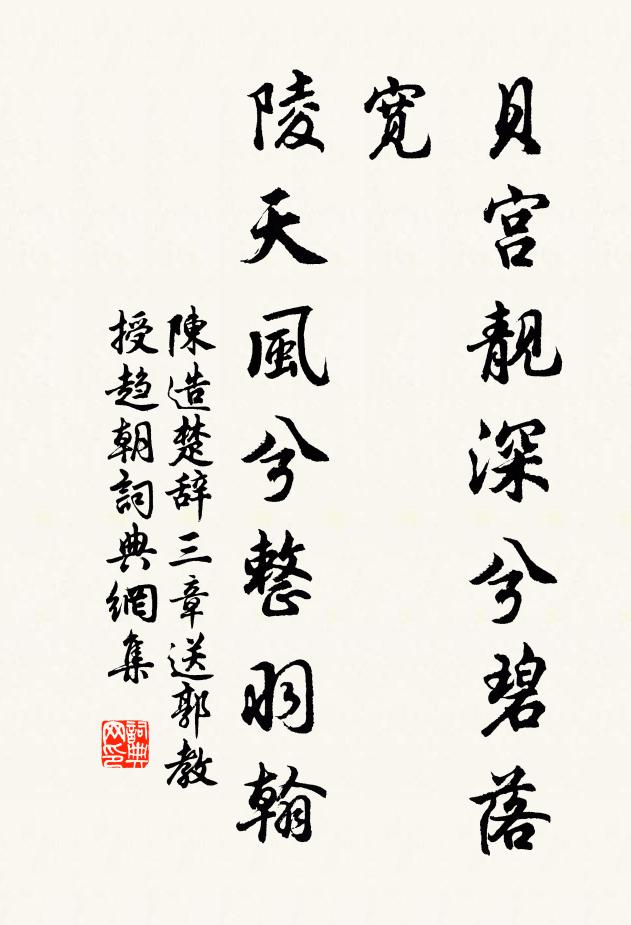 貝宮靚深兮碧落
寬
陵天風兮整羽翰
陳造楚辞三章送郭教
授趋朝詞典網集
詞典
网印